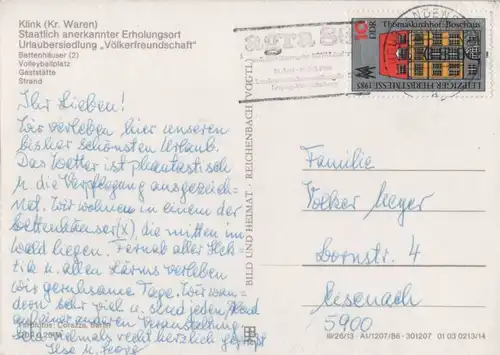 Klink (Kr. Waren)
Staatlich anerkannter Erholungsort
Urlaubersiedlung „Völkerfreundschaft"
Bettenhäuser (2)
Volleyballplatz
Gaststätte
Strand
Ihr Lieben!
Wir verleben hier unseren
bisher schönsten Urlaub.
Das Wetter ist phantastisch
u. die Verpflegung ausgezeich-
net. Wir wohnen in einem der
Bettenhäuser (x), die mitten im
Wald liegen. Fernab aller Hek-
tik u. allen Lärms verleben
wir geruhsame Tage. Wir wan-
dern sehr viel u. sind jeden Abend
auf einer anderen Veranstaltung.
Seid nochmals recht herzlich gegrüßt
Ilse u.
BILD UND HEIMAT · REICHENBACH (VOGTL)
agra
DDR
10
Thomaskirchhof · Bosehaus
LEIPZIGER HERBSTMESSE 1985
Familie
Volker Meyer
Dornstr. 4
Eisenach
5900
III/26/13 A1/1207/86 301207 01 03 0213/14